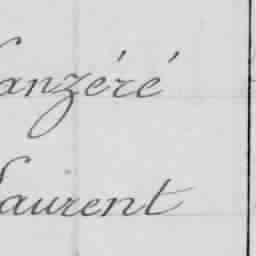 Lanzéré
Laurent